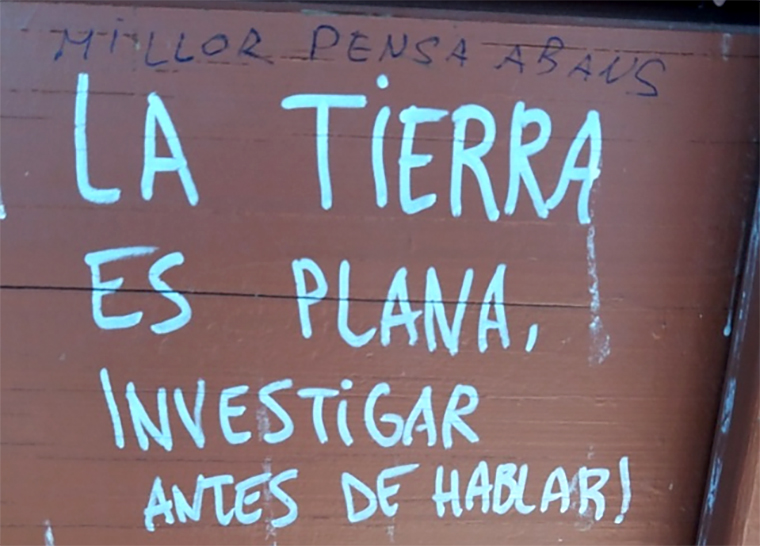 MILLOR PENSA ABANS
LA TIERRA
ES PLANA,
INVESTIGAR
ANTES DE HABLAR!